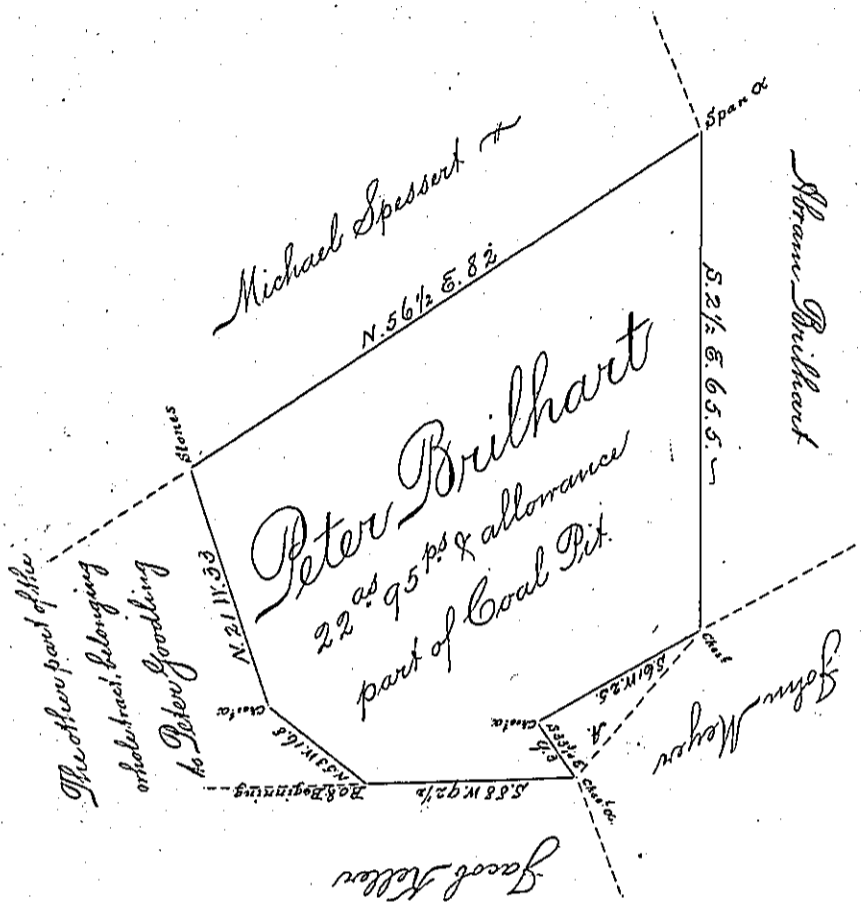 Span O
Michael Spessert
N. 56 1/2 E. 82
Abram Brilhart
S. 2 1/2 E. 65.5.
Stones
Peter Brilhart
22 as 95 ps & allowance
part of Coal Pit.
N. 21 W. 33
The other part of the
whole tract, belonging
to Peter Goodling
Chest O
N 53 W. 16.8
Beginning
S. 88 W. 92 1/2
S. 61 W. 25
Chest O
A.
Chest
Chest O.
John Meyer
Jacob Keller